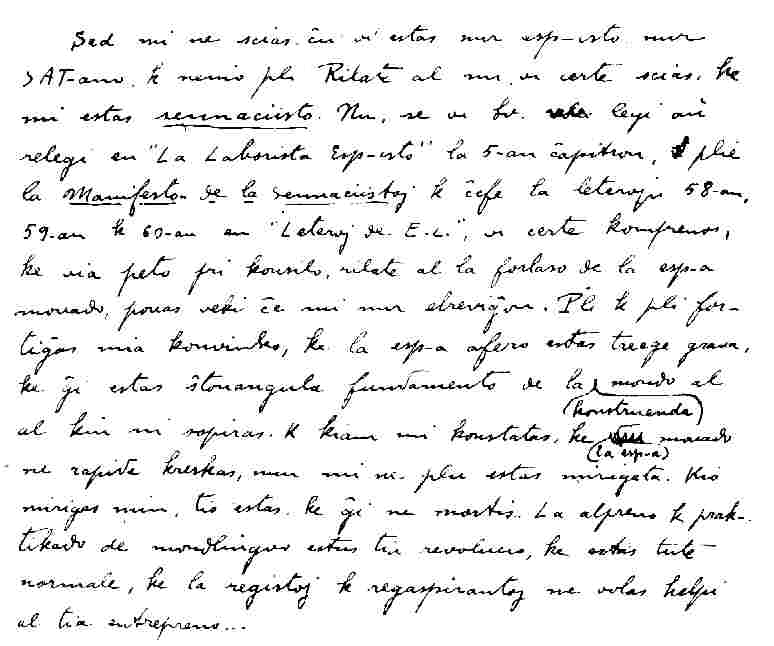 Sed mi ne scias. ĉu vi estas nur esp-isto nur
SAT-ano. k nenio pli Rilate al mi, vi certe scias. ke
mi estas sennaciisto. Nu, se vi bv. legi aŭ
relegi en "La Laborista Esp-isto" la 5-an ĉapitron, plie
la Manifeston de la sennaciistoj k ĉefe la leterojn 58-an,
59-an k 60-an en "Leteroj de E.L.", vi certe komprenos,
ke via peto pri konsilo, rilate al la forlaso de la esp-a
movado, povas veki ĉe mi nur elreviĝon. Pli k pli for-
tiĝas mia konvinko, ke la esp-a afero estas treege grava,
ke ĝi estas ŝtonangula fundamento de la mondo al
(konstruenda)
al kiu ni sopiras. K kiam mi konstatas, ke movado
(la esp-a)
ne rapide kreskas, nun mi ne plu estas mirigata. Kio
mirigas min, tio estas. ke ĝi ne mortis. La alpreno k prak-
tikado de mondlingvo estus tia revolucio, ke estas tute
normale, ke la registoj k regaspirantoj ne volas helpi
al tia entrepreno...